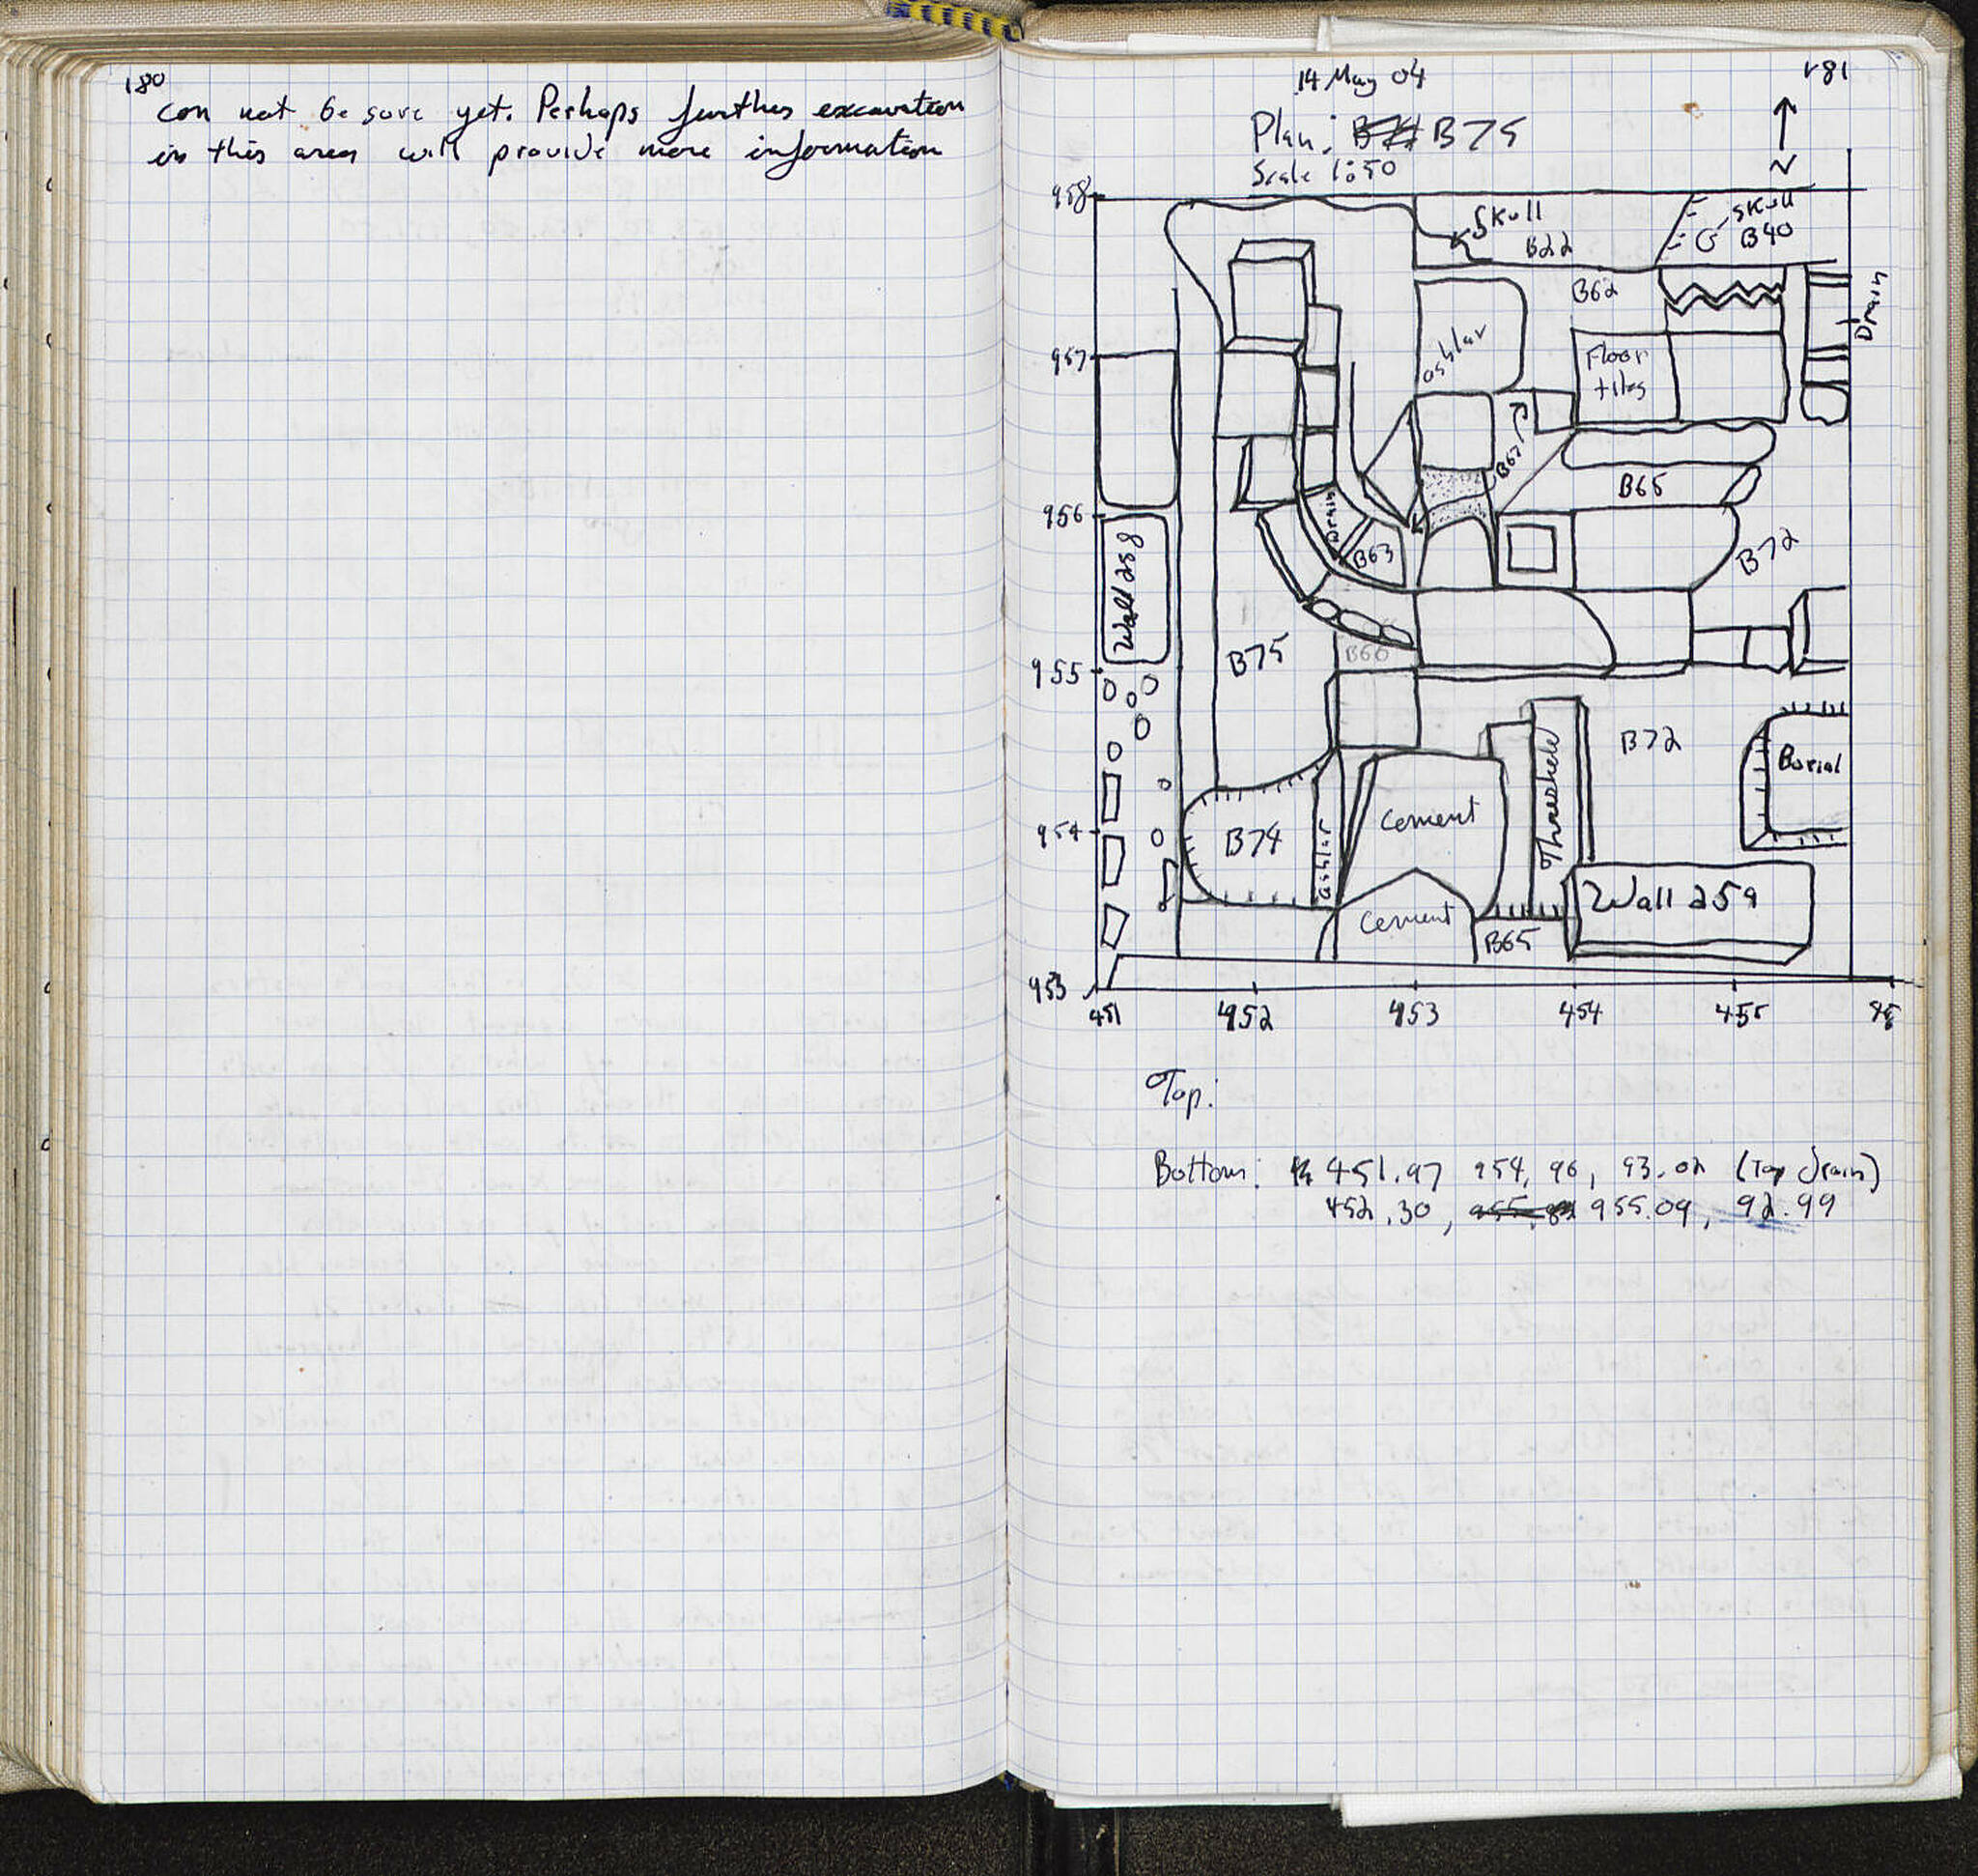 180
can not be sure yet. Perhaps further excavation
in this area will provide more information
14 May 04
181
Plan: B75
Scale 1:50
N
958
957
956
955
954
953
451
452
453
454
455
Skull
B22
Skull
B40
B62
Drain
ashlar
Floor
tiles
B67
B65
Drain
B63
B72
Wall 258
B75
B66
B72
Threshold
Burial
B74
ashlar
Cement
Cement
Wall 259
B65
Top:
Bottom: 451.97 954.96, 93.02 (Top drain)
452.30, 955.09, 92.99